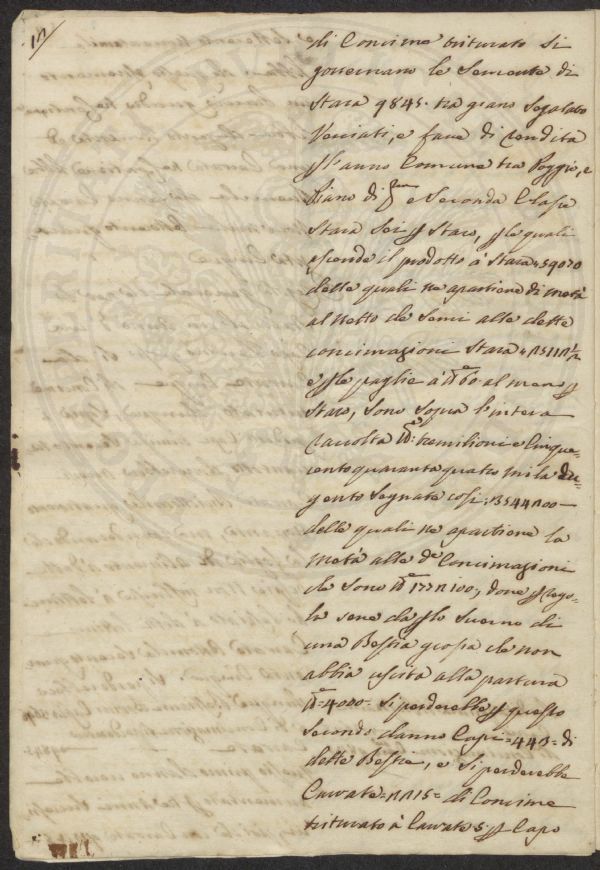 di Concime triturato si
governano le Semente di
Stara 9845. tra grano Segalato
Vecciati, e fave di rendita
l'anno Comune tra Poggio, e
Piano di p.ma e Seconda Classe
Stara Sei p Staro, p le quali
scende il prodotto à Stara 59070
delle quali ne apartiene di metà
al Netto de Semi alle dette
concimazioni Stara
e p le paglie à 60. al meno p
Staro, sono sopra l'intera
raccolta tremilioni e Cinque-
cento quaranta quatro mila du-
gento Segnate così: 3544200
delle quali ne apartiene la
metà alle d.e Concimazioni
che sono 1772100, dove p rego-
la sene da p lo Sverno di
una Bestia grossa che non
abbia uscita alla pastura
4000. Si perderebbe p questo
Secondo danno Capi 443 di
dette Bestie, e Si perderebbe
Carrate 2215 di Concime
triturato à Carrate 5 p Capo